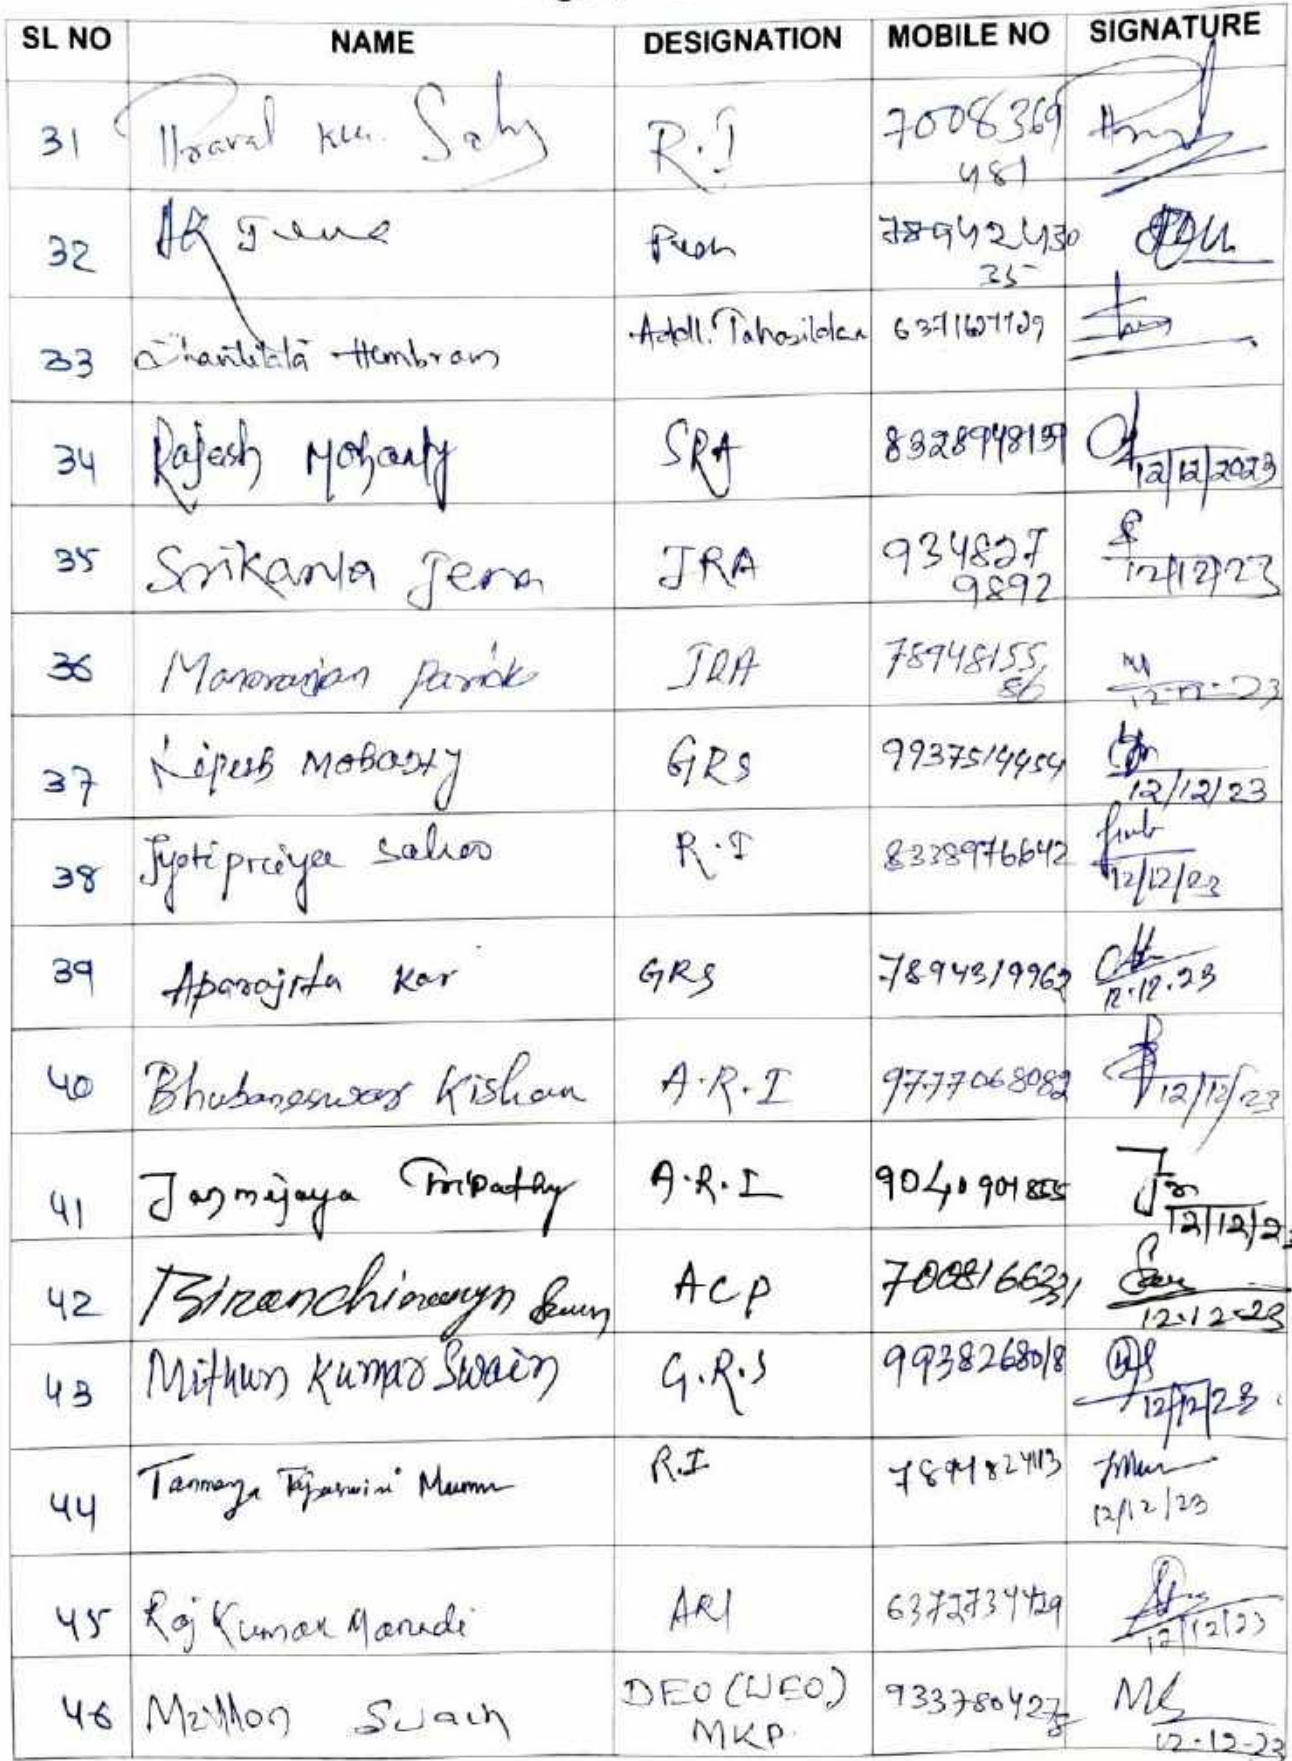 SL NO NAME DESIGNATION MOBILE NO SIGNATURE
31 Ku. Sahu R.I 7008369
481
32 AK Jena Peon 789424130
35
33 Hembram Addl. Tahasildar
34 Rajesh Mohanty SRA 8328948139
12/12/2023
35 Srikanta Jena JRA 934827
9892
12/12/23
36 Manoranjan Parida JRA 78948155
86
12-12-23
37 Mohanty GRS 9937514454
12/12/23
38 Jyotipriya Sahoo R.I 8338976642
12/12/23
39 Aparajita Kar GRS 7894319962
12.12.23
40 Bhubaneswar Kishan A.R.I 9777068082
12/12/23
41 Janmejaya Tripathy A.R.I
12/12/23
42 ACP
12.12.23
43 Mithun Kumar Swain G.R.S 9938268018
12/12/23
44 Tanmaya Tejaswini Murmu R.I
12/12/23
45 Raj Kumar Marndi ARI 6372734429
12/12/23
46 Swain DEO (WEO)
MKP. 9337804278
12-12-23